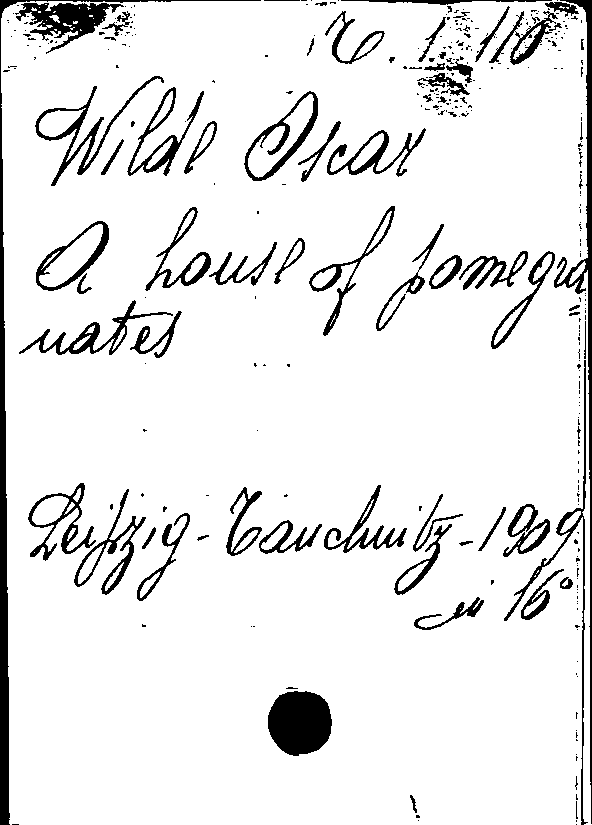 1. 110
Wilde Oscar
A house of pomegra=
nates
Leipzig - Tauchnitz - 1909.
in 16°